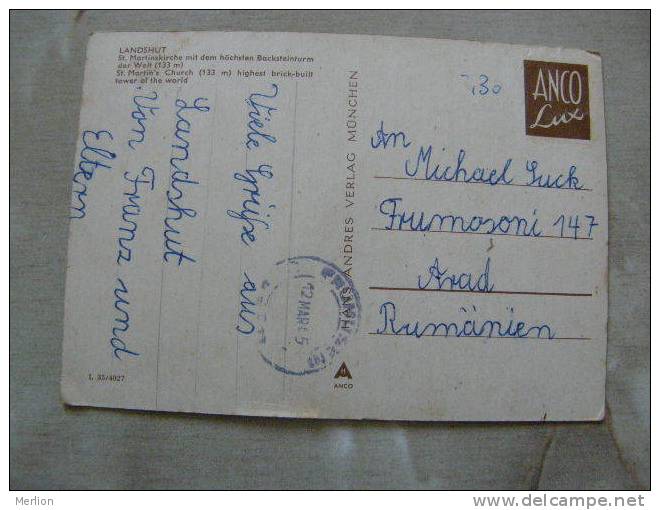 LANDSHUT
St. Martinskirche mit dem höchsten Backsteinturm
der Welt (133 m)
St. Martin's Church (133 m) highest brick-built
tower of the world
Viele Grüße aus
Landshut
Von Franz und
Eltern
L 35/4027
HANS ANDRES VERLAG MÜNCHEN
ANCO
12 MAR
ANCO
Lux
An
Michael Guck
Frumosoni 147
Arad
Rumänien
Merlion
http://www.delcampe.net